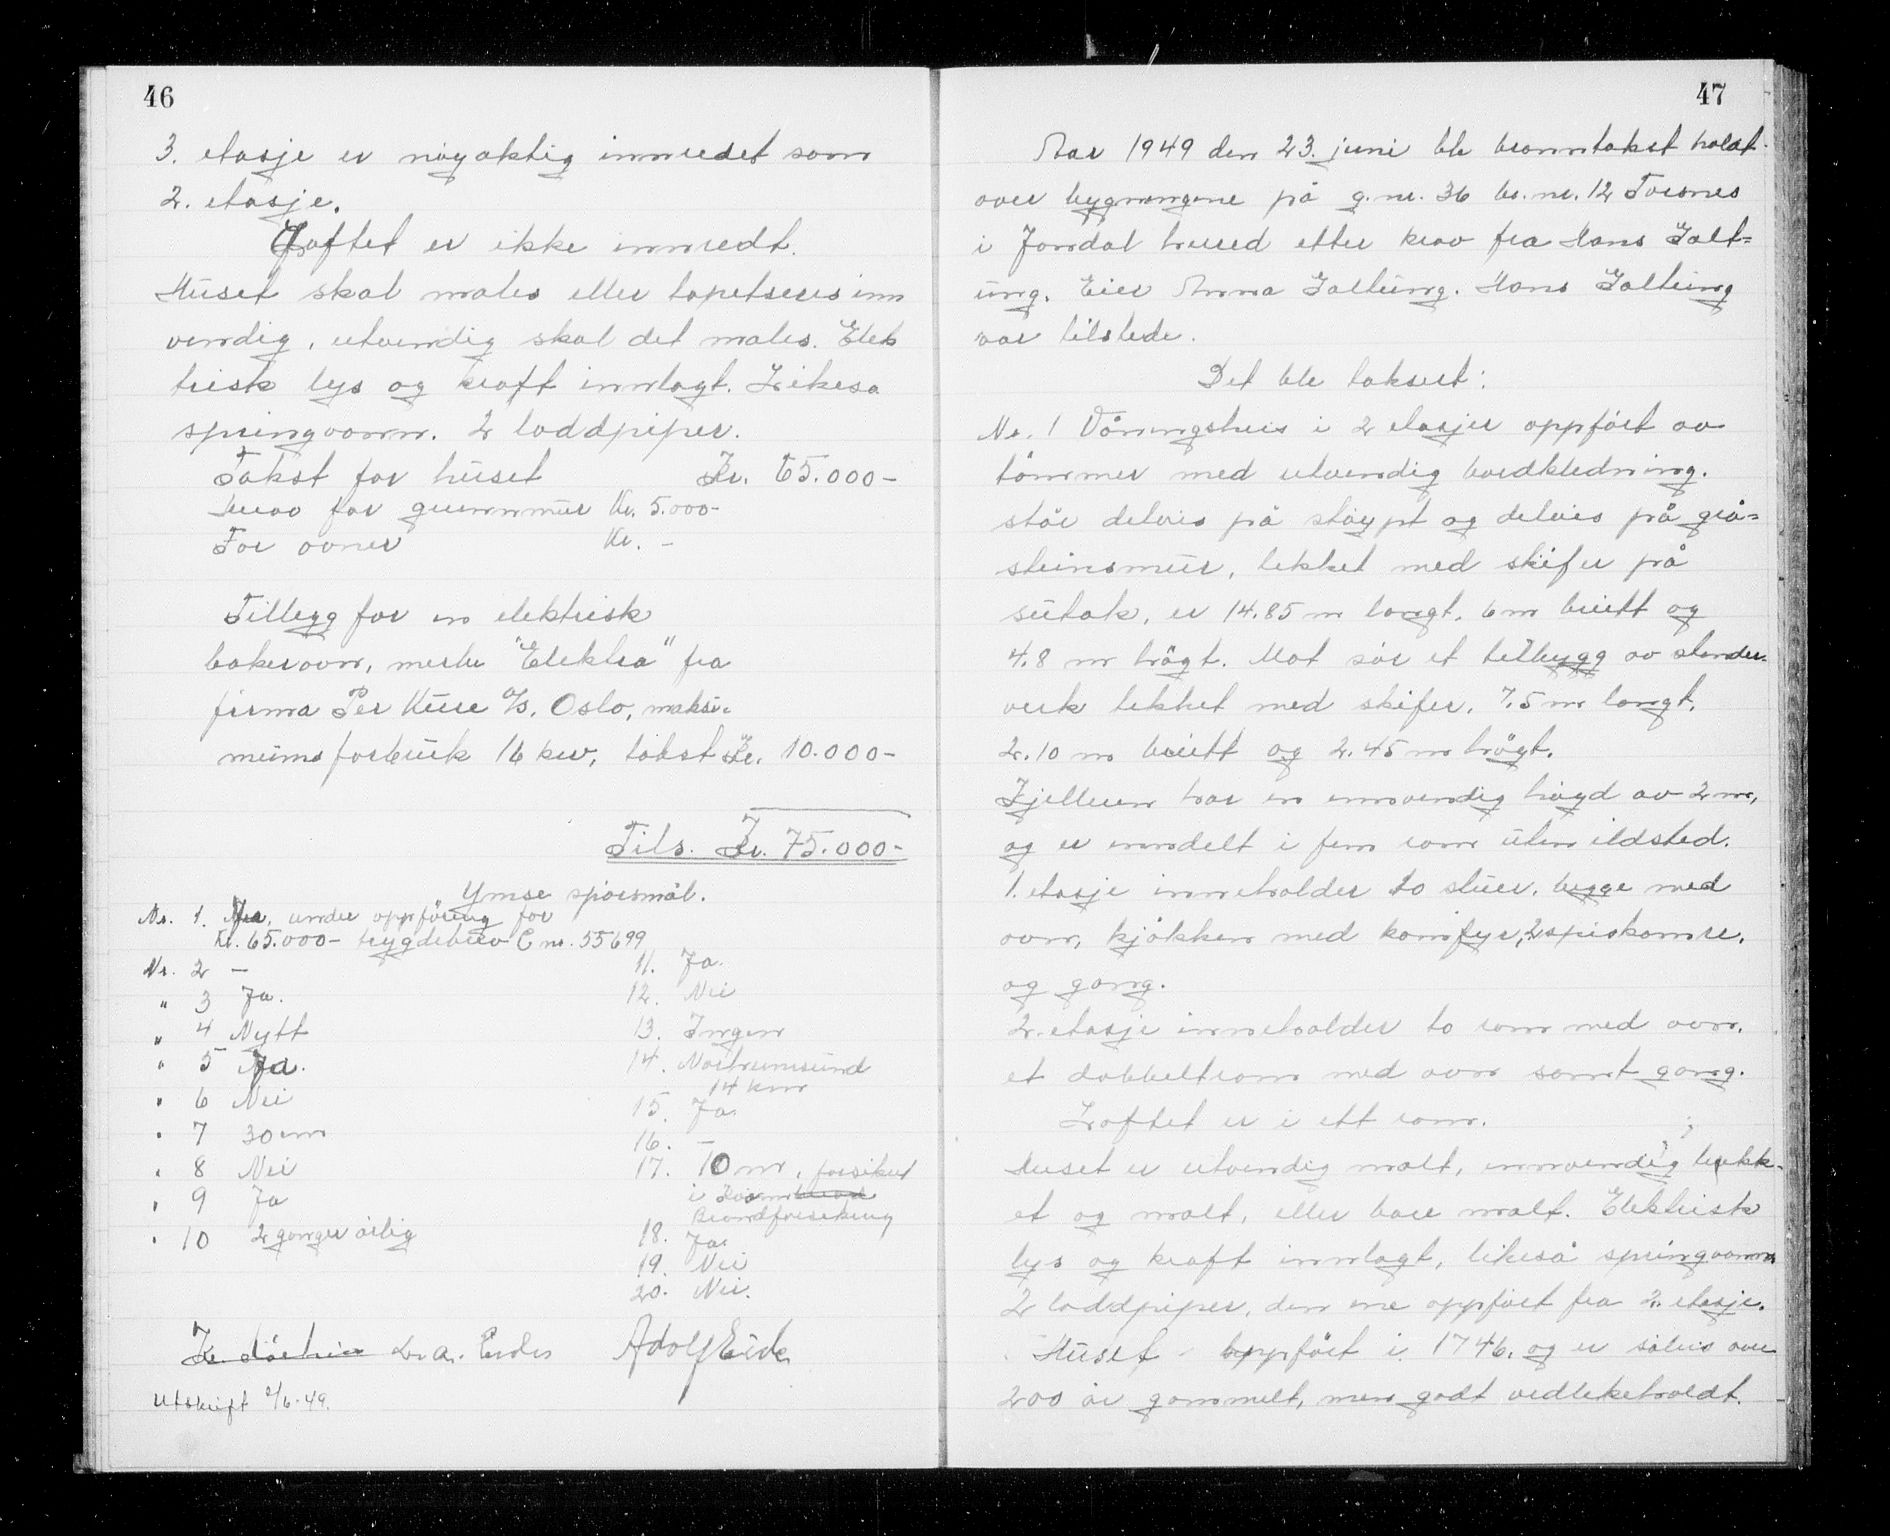 46
3. etasje er nøyaktig innredet som
2. etasje.
Loftet er ikke innredt.
Huset skal males eller tapetseres inn
vendig, utvendig skal det males. Elek
trisk lys og kraft innlagt. Likesa
springvann. 2 loddpiper.
Takst for huset Kr. 65.000-
Herav for grunnmur Kr. 5.000-
For ovner Kr. -
Tillegg for en elektrisk
bakerovn, merke "Elektra" fra
firma Per Kure A/S. Oslo, maksi=
mumsforbruk 16 kw, takst Kr. 10.000-
Tils. Kr. 75.000-
Ymse spørsmål.
Nr. 1. Ja, under oppføring for
Kr. 65.000- trygdebrev C nr. 55699
Nr. 2 -
" 3 Ja.
" 4 Nytt
" 5 Ja.
" 6 Nei
" 7 30 cm
" 8 Nei
" 9 Ja
" 10 2 ganger årlig
11. Ja.
12. Nei
13. Ingen
14. Norheimsund
14 km
15. Ja
16. -
17. 10 m, forsikret
i
Brandforsikring
18. Ja.
19. Nei
20. Nei.
Adolf Eide
Utskrift 2/6-49.
47
Aar 1949 den 23. juni ble branntakst holdt
over bygningene på g.nr. 36 br.nr. 12 Torsnes
i Jondal herred etter krav fra Hans Galt=
ung. Eier Anna Galtung. Hans Galtung
var tilstede.
Det ble taksert:
Nr. 1 Våningshus i 2 etasjer oppført av
tømmer med utvendig bordkledning.
står delvis på støypt og delvis på grå=
steinsmur, tekket med skifer på
sutak, er 14.85 m langt. 6 m breitt og
4.8 m høgt. Mot sør et tilbygg av stender=
verk tekket med skifer. 7.5 m langt.
2.10 m breitt og 2.45 m høgt.
Kjelleren har en innvendig høgd av 2 m,
og er inndelt i fem rom uten ildsted.
1. etasje inneholder to stuer, begge med
ovn, kjøkken med komfyr, 2 spiskamre,
og gang.
2. etasje inneholder to rom med ovn.
et dobbeltrom med ovn samt gang.
Loftet er i ett rom.
Huset er utvendig malt, innvendig trekk-
et og malt, eller bare malt. Elektrisk
lys og kraft innlagt, likeså springvann
2 loddpiper, den ene oppført fra 2. etasje.
Huset oppført i 1746, og er såleis over
200 år gammelt, men godt vedlikeholdt.